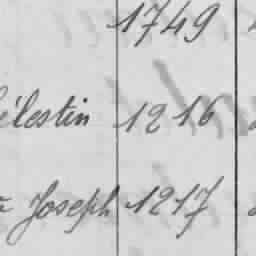 1749
élestin 1216
Joseph 1217